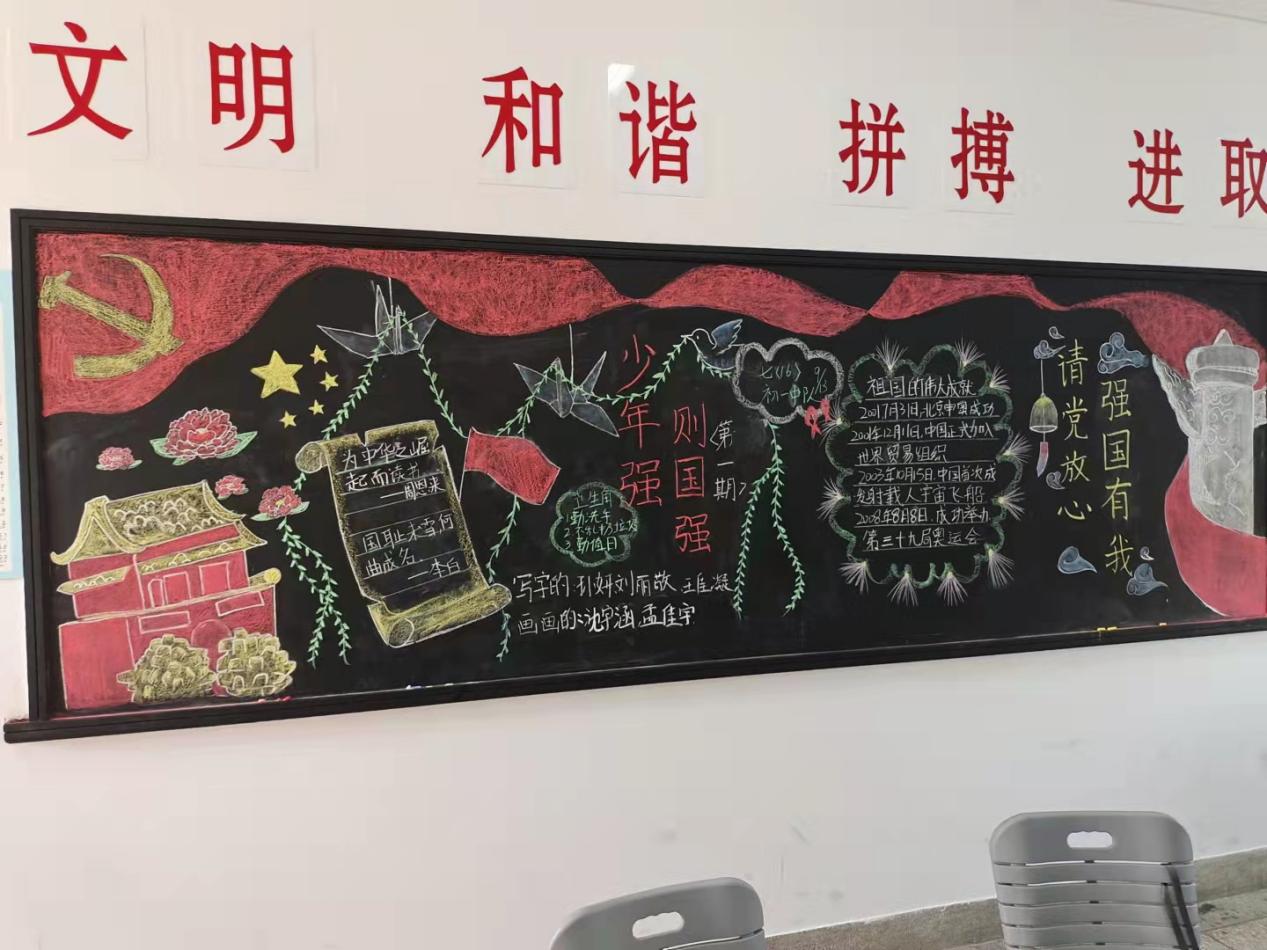 文明 和谐 拼搏 进取
为中华之崛
起而读书
——周恩来
国耻未雪,何
由成名
——李白
少年强
则国强
〈第一期〉
卫生间
1勤洗手
2不乱扔垃圾
3勤值日
写字的:
画画的:沈宇涵 孟佳宇
祖国的伟大成就
2001年7月13日,北京申奥成功
2001年12月11日,中国正式加入
世界贸易组织
2003年10月15日,中国首次成
功发射载人宇宙飞船
2008年8月8日,成功举办
第二十九届奥运会
请党放心
强国有我